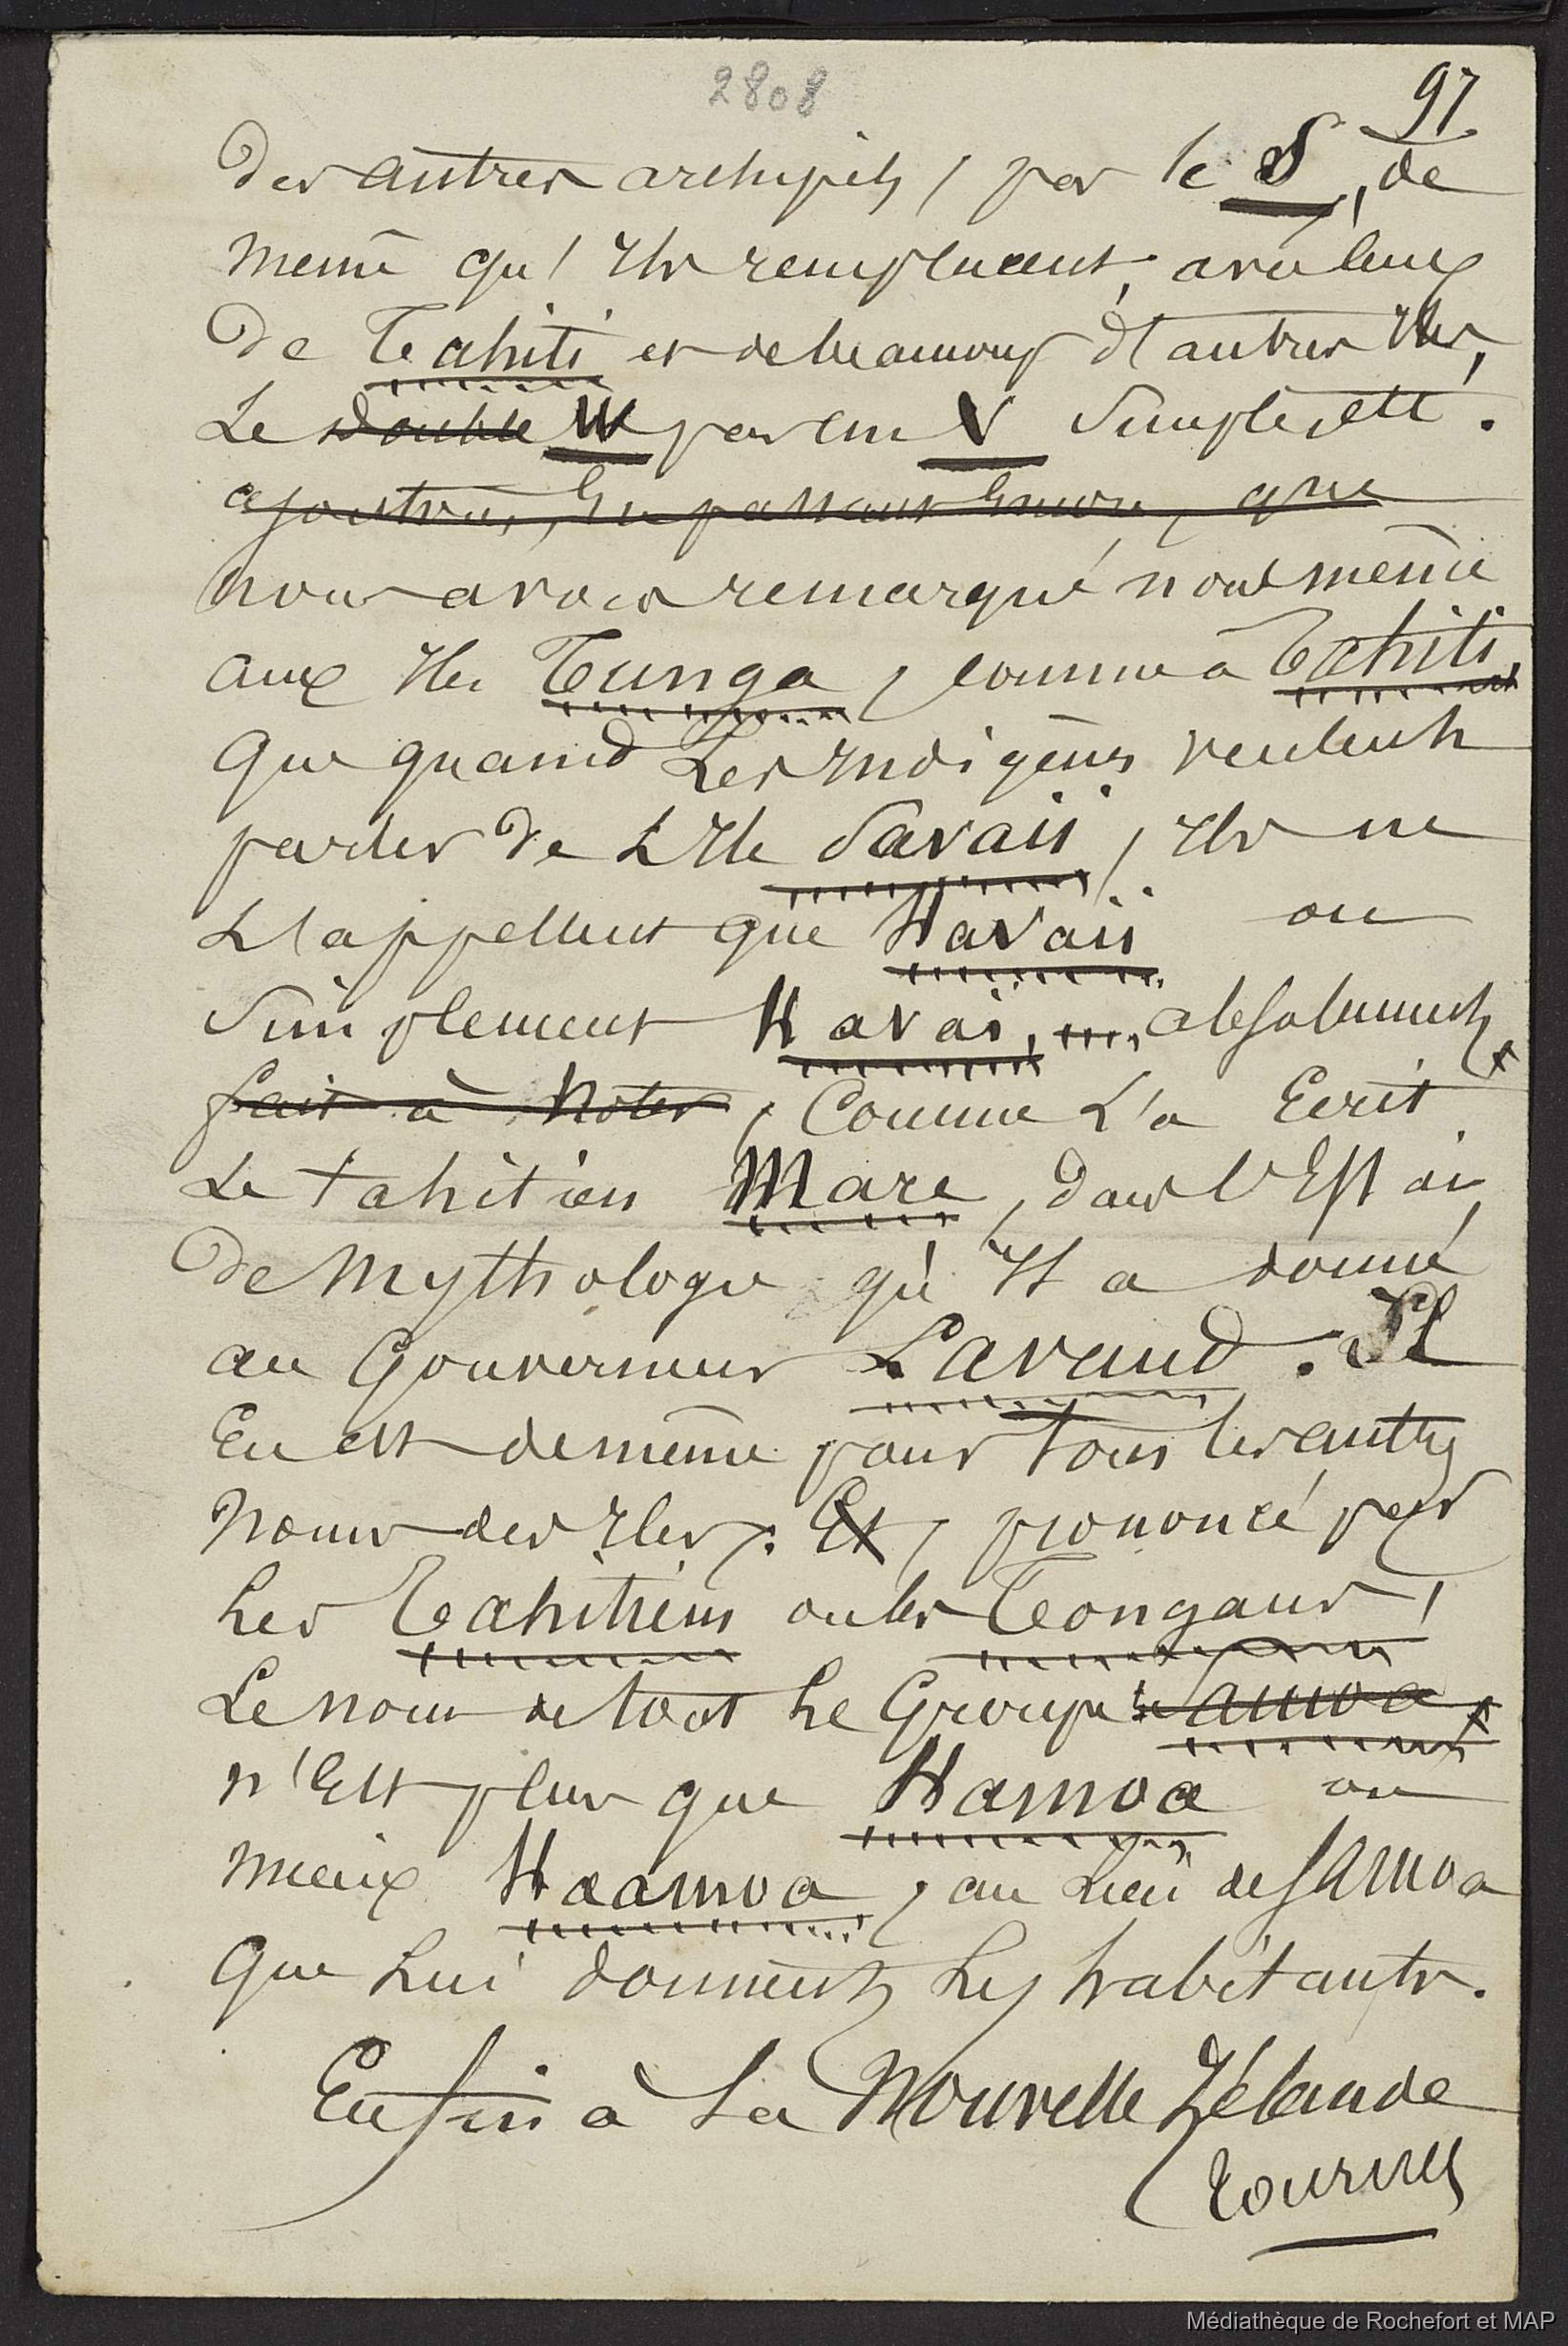 2808
97
Des autres archipels, par le S, de
même qu'Ils remplacent, avec ceux
De Tahiti et de beaucoup d'autres Iles,
Le double W par un V simple, ett.
ajoutons, En passant Encore, que
nous avons remarqué nous même
aux Iles Tunga, comme à Tahiti,
Que quand Les Indigènes veulent
parler De L'Ile Savaii, Ils ne
L'appellent que Havaii ou
Simplement Havai, absolument
fait à Noter, Comme L'a Ecrit
Le tahitien Mare, dans l'Essai
De Mythologie qu'Il a donné
au Gouverneur Lavaud. Il
En est de même pour tous les autres
Noms des Iles. Et, prononcé par
Les Tahitiens ou les Tongans,
Le nom de tout Le Groupe Samoa
n'Est plus que Hamoa ou
mieux Haamoa, au Lieu de Samoa
Que Lui donnent Les habitants.
Enfin à La Nouvelle Zélande
tournez
Médiathèque de Rochefort et MAP